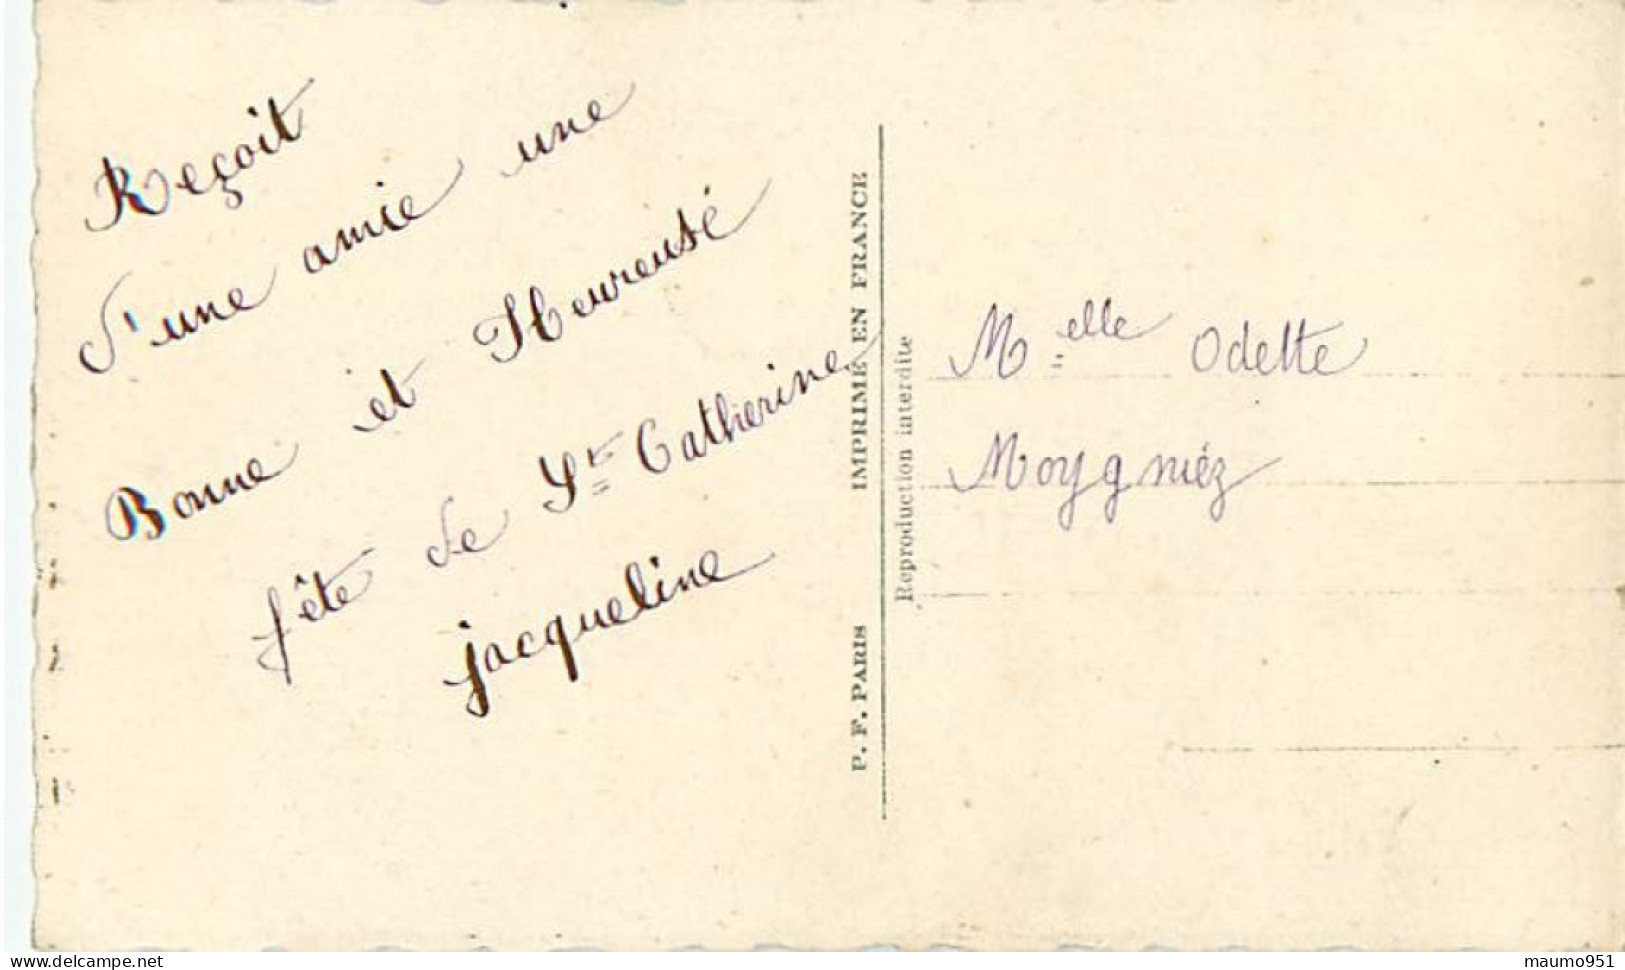 Reçoit
d'une amie une
Bonne et Heureusé
fête de Ste Catherine
jacqueline
P. F. PARIS IMPRIMÉ EN FRANCE
Reproduction interdite
Melle Odette
Moygniéz
maumo951